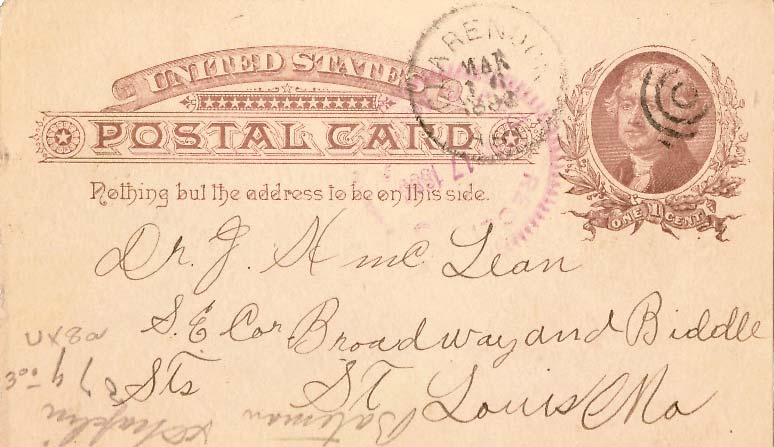 UNITED STATES
POSTAL CARD
Nothing but the address to be on this side.
ONE 1 CENT
CLARENDON
MAR
REC'D
17
Dr. J. H Mc Lean
S. E Cor Broadway and Biddle
Sts St Louis Mo
UX8a
Bateman